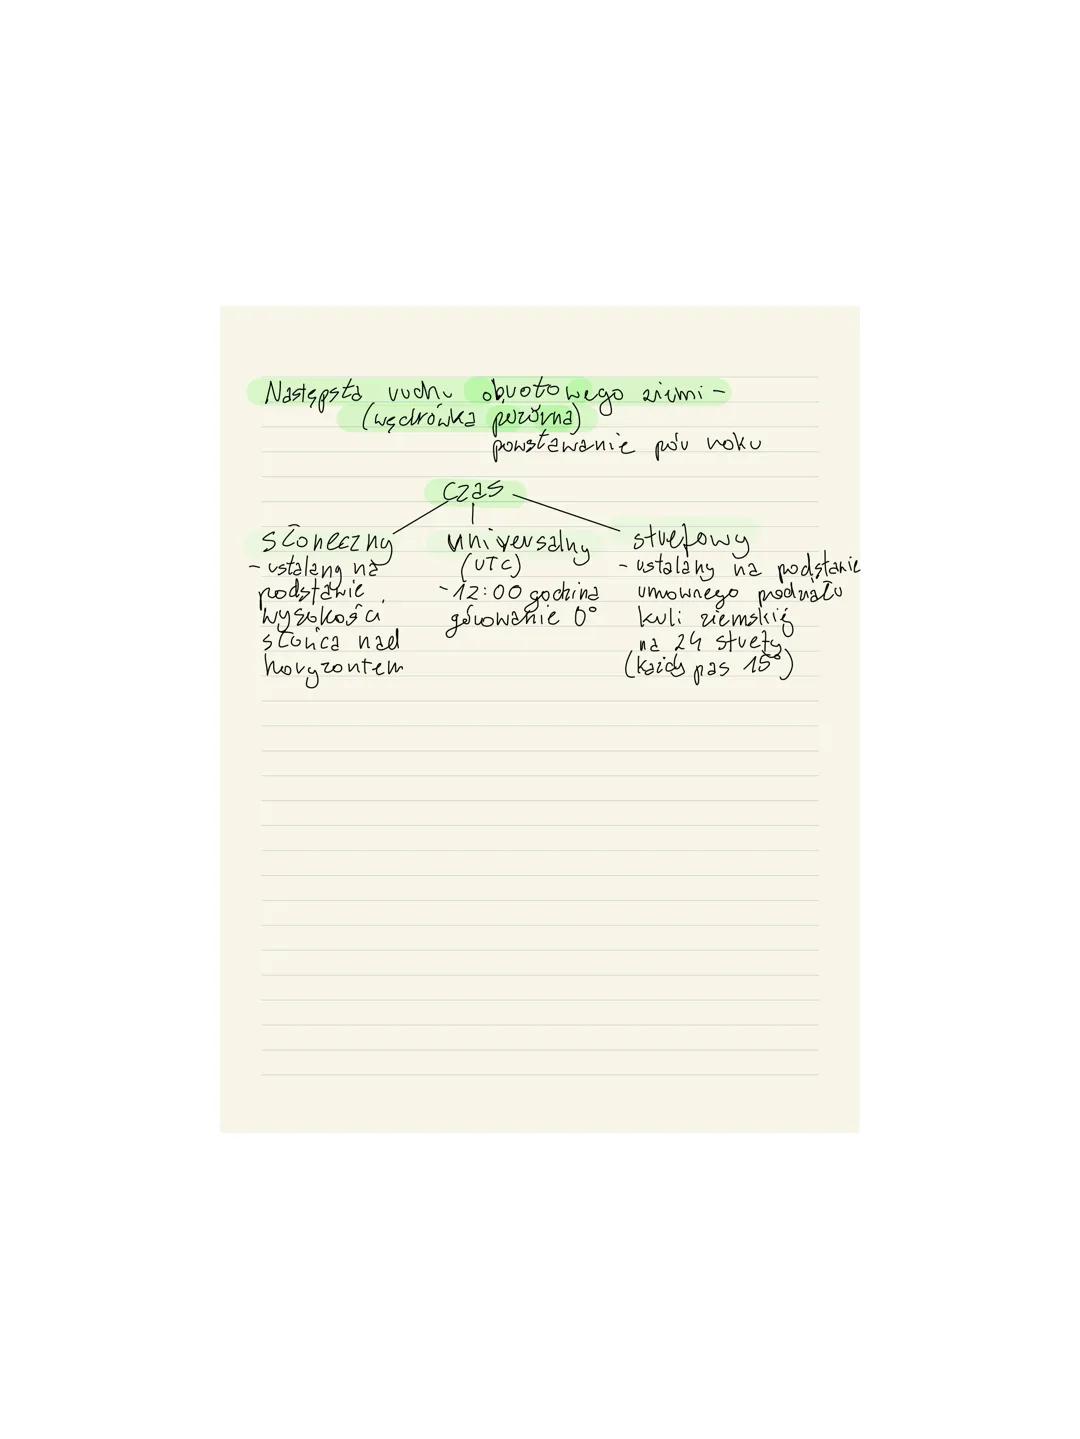 Następsta ruchu obrotowego ziemi -
(wędrówka pozorna)
powstawanie pór roku
czas
słoneczny
- ustalany na
podstawie
wysokości
słońca nad
horyzontem
uniwersalny
(UTC)
- 12:00 godzina
górowanie 0°
strefowy
- ustalany na podstawie
umownego podziału
kuli ziemskiej
na 24 strefy
(każdy pas 15°)